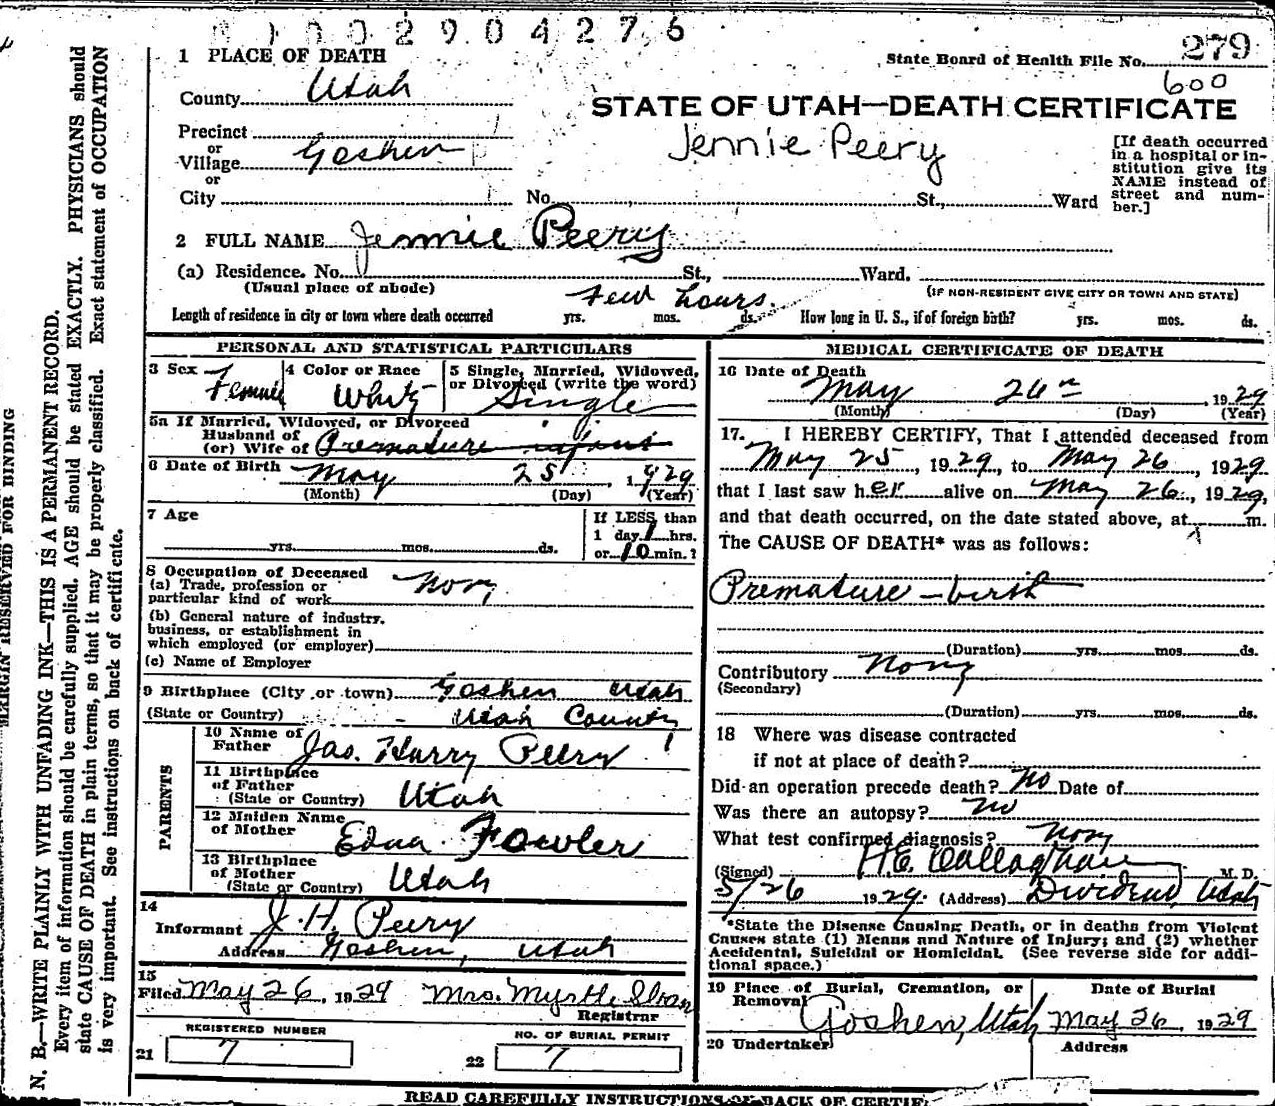 0002904276
279
State Board of Health File No.
600
1 PLACE OF DEATH
County Utah
STATE OF UTAH—DEATH CERTIFICATE
Jennie Peery
Precinct
or
Village Goshen
or
City No. St., Ward
[If death occurred
in a hospital or in-
stitution give its
NAME instead of
street and num-
ber.]
2 FULL NAME Jennie Peery
(a) Residence. No. St., Ward.
(Usual place of abode)
(IF NON-RESIDENT GIVE CITY OR TOWN AND STATE)
few hours.
Length of residence in city or town where death occurred yrs. mos. ds. How long in U. S., if of foreign birth? yrs. mos. ds.
PERSONAL AND STATISTICAL PARTICULARS
3 Sex Female
4 Color or Race White
5 Single, Married, Widowed,
or Divorced (write the word)
Single
5a If Married, Widowed, or Divorced
Husband of
(or) Wife of Premature infant
6 Date of Birth May 25, 1929
(Month) (Day) (Year)
7 Age
yrs. mos. ds.
If LESS than
1 day, 1 hrs.
or 10 min.?
8 Occupation of Deceased
(a) Trade, profession or
particular kind of work None
(b) General nature of industry,
business, or establishment in
which employed (or employer)
(c) Name of Employer
9 Birthplace (City or town) Goshen Utah
(State or Country) Utah County
PARENTS
10 Name of
Father Jas. Harry Peery
11 Birthplace
of Father
(State or Country) Utah
12 Maiden Name
of Mother Edna Fowler
13 Birthplace
of Mother
(State or Country) Utah
14
Informant J. H. Peery
Address Goshen, Utah
15
Filed May 26, 1929 Mrs. Myrtle Sloan
Registrar
REGISTERED NUMBER
21 7
NO. OF BURIAL PERMIT
22 7
MEDICAL CERTIFICATE OF DEATH
16 Date of Death
May 26th, 1929
(Month) (Day) (Year)
17. I HEREBY CERTIFY, That I attended deceased from
May 25, 1929, to May 26, 1929.
that I last saw her alive on May 26, 1929,
and that death occurred, on the date stated above, at m.
The CAUSE OF DEATH* was as follows:
Premature - birth
(Duration) yrs. mos. ds.
Contributory None
(Secondary)
(Duration) yrs. mos. ds.
18 Where was disease contracted
if not at place of death?
Did an operation precede death? No Date of
Was there an autopsy? no
What test confirmed diagnosis? None
(Signed) H.E. Callaghan M. D.
5/26 1929. (Address) Dividend, Utah
*State the Disease Causing Death, or in deaths from Violent
Causes state (1) Means and Nature of Injury; and (2) whether
Accidental, Suicidal or Homicidal. (See reverse side for addi-
tional space.)
19 Place of Burial, Cremation, or
Removal
Goshen, Utah
Date of Burial
May 26, 1929
20 Undertaker
Address
READ CAREFULLY INSTRUCTIONS OF BACK OF CERTIF
MARGIN RESERVED FOR BINDING
N. B.—WRITE PLAINLY WITH UNFADING INK—THIS IS A PERMANENT RECORD.
Every item of information should be carefully supplied. AGE should be stated EXACTLY. PHYSICIANS should
state CAUSE OF DEATH in plain terms, so that it may be properly classified. Exact statement of OCCUPATION
is very important. See instructions on back of certificate.